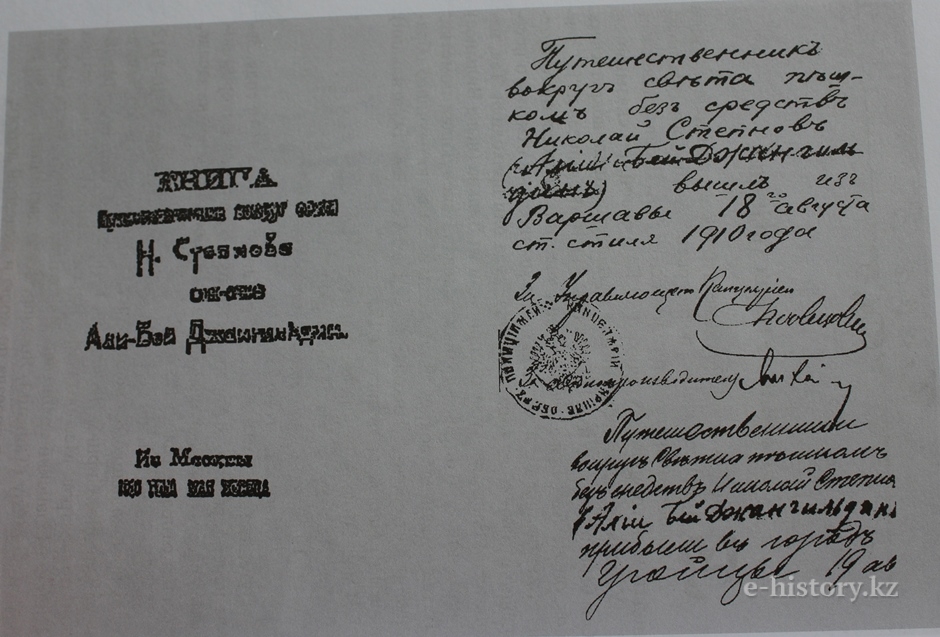 КНИГА
Н. Степнова
он-же
Али-Бей Джангильдин.
Из Москвы
Путешественникъ
вокругъ свѣта пѣш-
комъ безъ средствъ
Николай Степновъ
(Алій Бей Джангиль
динъ) вышлъ изъ
Варшавы 18го августа
ст. стиля 1910 года
За Управляющего
За делопроизводителя
Путешественники
вокругъ свѣта пѣшкомъ
безъ средствъ Николай Степно
(Алій Бей Джангильдин
прибыли въ городъ
19 ав
e-history.kz